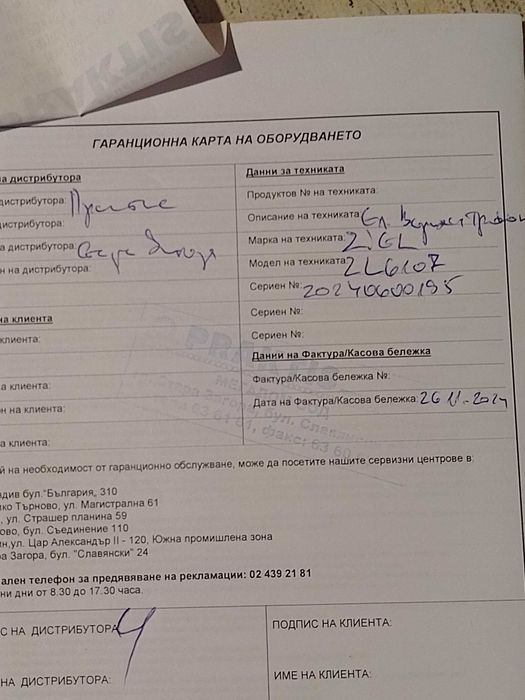 ГАРАНЦИОННА КАРТА НА ОБОРУДВАНЕТО
на дистрибутора
дистрибутора:
дистрибутора:
а дистрибутора: Стара Загора
н на дистрибутора:
на клиента
клиента:
а клиента:
он на клиента:
а клиента:
Данни за техниката
Продуктов № на техниката:
Описание на техниката: Ел.
Марка на техниката:
Модел на техниката: ZL6107
Сериен №: 20240600195
Сериен №:
Сериен №:
Данни на Фактура/Касова бележка
Фактура/Касова бележка №:
Дата на Фактура/Касова бележка: 26.11.2024
PRAKTIS
ай на необходимост от гаранционно обслужване, може да посетите нашите сервизни центрове в:
вдив бул."България, 310
ико Търново, ул. Магистрална 61
, ул. Страшер планина 59
ово, бул. Съединение 110
ин,ул. Цар Александър II - 120, Южна промишлена зона
ра Загора, бул. "Славянски" 24
ален телефон за предявяване на рекламации: 02 439 21 81
ни дни от 8.30 до 17.30 часа.
С НА ДИСТРИБУТОРА
НА ДИСТРИБУТОРА:
ПОДПИС НА КЛИЕНТА:
ИМЕ НА КЛИЕНТА: